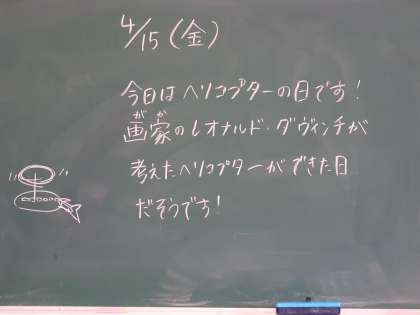 4/15(金)
今日はヘリコプターの日です!
がか
画家のレオナルド・ダヴィンチが
考えたヘリコプターができた日
だそうです!